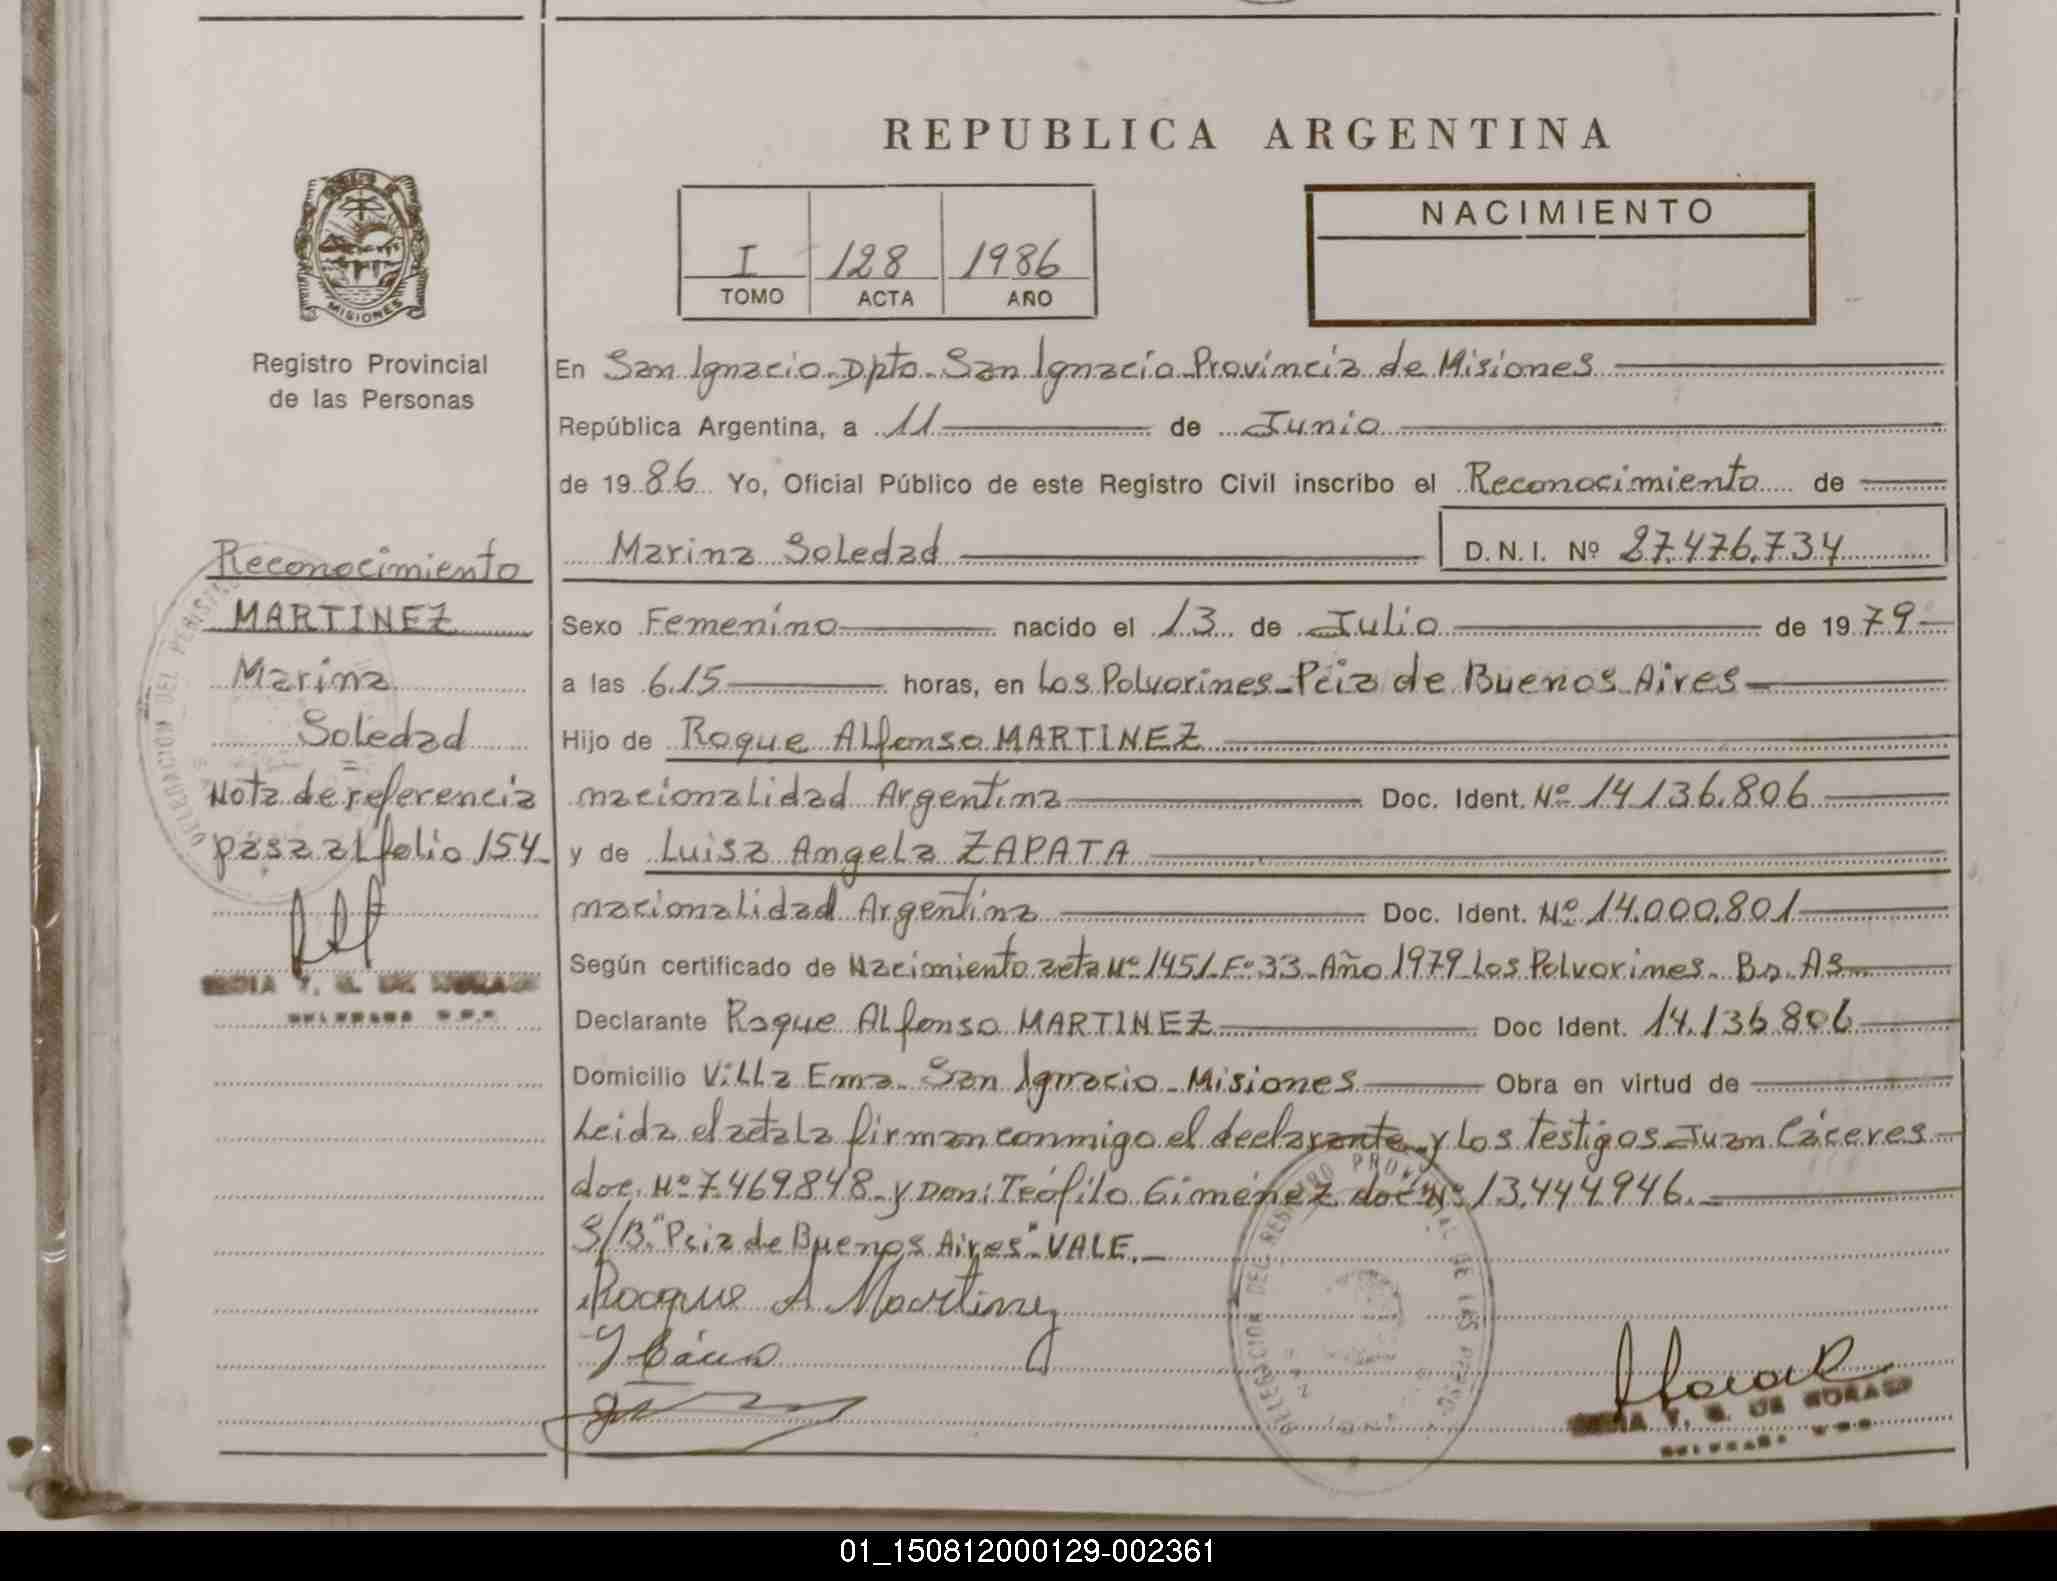 REPUBLICA ARGENTINA
NACIMIENTO
I 128 1986
TOMO ACTA AÑO
MISIONES
Registro Provincial
de las Personas
En San Ignacio Dpto. San Ignacio Provincia de Misiones
República Argentina, a 11 de Junio
de 1986 Yo, Oficial Público de este Registro Civil inscribo el Reconocimiento de
Marina Soledad D.N.I. Nº 27.476.734
Sexo Femenino nacido el 13 de Julio de 1979
a las 6.15 horas, en Los Polvorines-Pcia de Buenos Aires
Hijo de Roque Alfonso MARTINEZ
nacionalidad Argentina Doc. Ident. Nº 14.136.806
y de Luisa Angela ZAPATA
nacionalidad Argentina Doc. Ident. Nº 14.000.801
Según certificado de Nacimiento acta Nº 1451 Fº 33 Año 1979 Los Polvorines Bs. As.
Declarante Roque Alfonso MARTINEZ Doc Ident. 14.136.806
Domicilio Villa Ema San Ignacio Misiones Obra en virtud de
Leida el acta la firman conmigo el declarante y los testigos Juan Cáceres
doc. Nº 7.469.848 y Don: Teófilo Giménez doc Nº 13.444.946.
S/B. "Pcia de Buenos Aires" VALE.
Roque A Martinez
Reconocimiento
MARTINEZ
Marina
Soledad
Nota de referencia
pasa al folio 154
DELEGACION DEL REGISTRO PROVINCIAL DE LAS
01_150812000129-002361